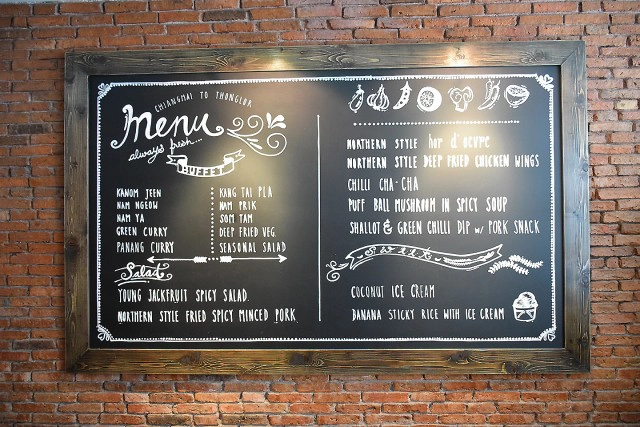 CHIANGMAI TO THONGLOR
Menu
always fresh...
BUFFET
KANOM JEEN
NAM NGEOW
NAM YA
GREEN CURRY
PANANG CURRY
KANG TAI PLA
NAM PRIK
SOM TAM
DEEP FRIED VEG.
SEASONAL SALAD
Salad
YOUNG JACKFRUIT SPICY SALAD.
NORTHERN STYLE FRIED SPICY MINCED PORK
NORTHERN STYLE hor d'oevre
NORTHERN STYLE DEEP FRIED CHICKEN WINGS
CHILLI CHA-CHA
PUFF BALL MUSHROOM IN SPICY SOUP
SHALLOT & GREEN CHILLI DIP w/ PORK SNACK
Sweets
COCONUT ICE CREAM
BANANA STICKY RICE WITH ICE CREAM